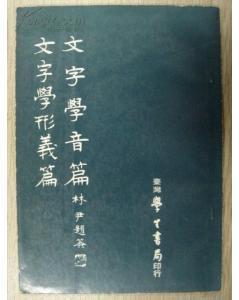 文字學音篇
文字學形義篇
林尹題簽
臺灣學生書局印行